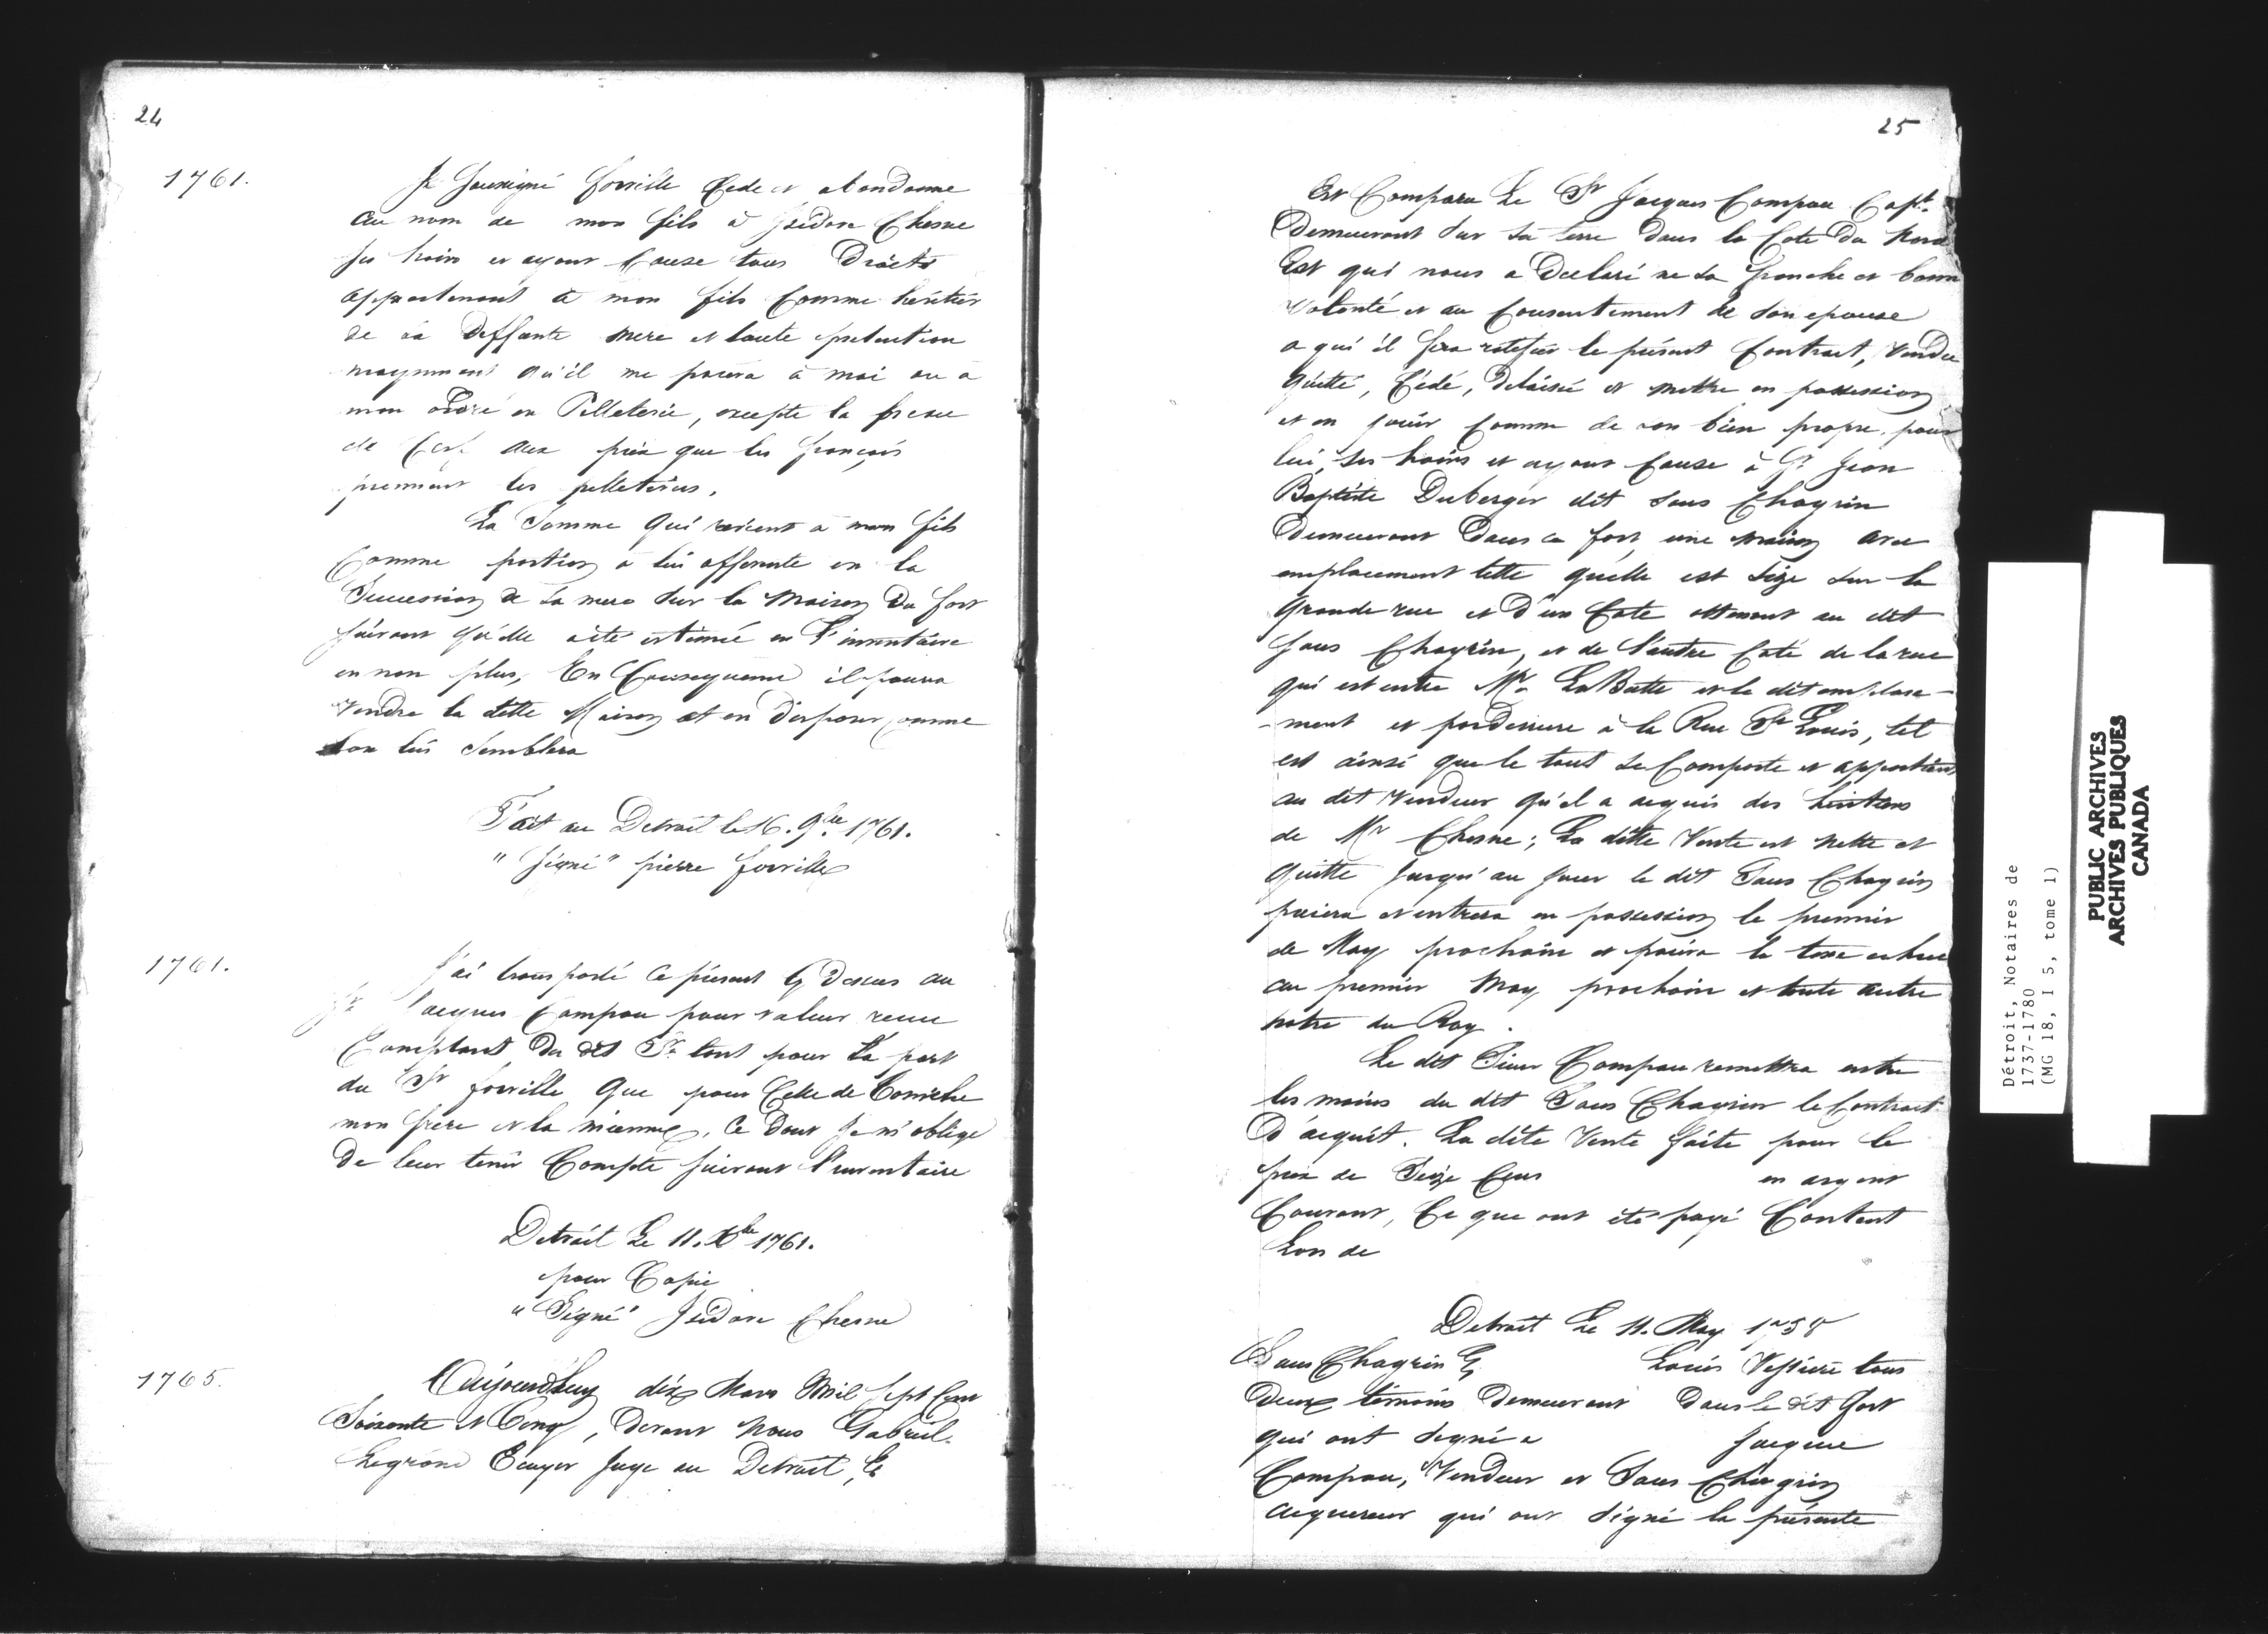 24
1761.
Je Soussigné forville Cede et abandonne
au nom de mon fils à Isidore Chesne
ses hoirs et ayant Cause tous Droits
appartenant à mon fils Comme héritier
de sa deffante mere et toute pretention
moyennant qu'il me paiera à moi ou à
mon ordre en Pelleterie, excepte la
de Cerf aux prix que les françois
prennent les pelleteries.
La Somme Qui revient à mon fils
Comme portion à lui afferente en la
Succession de sa mere sur la Maison Du fort
suivant qu'elle a été estimée en l'inventaire
en non plus, En Consequence il poura
Vendre la ditte Maison et en Disposer comme
bon lui Semblera
Fait au Detroit le 16. 9bre 1761.
"Signé" pierre forville
1761.
J'ai transporté Ce présent Cy Dessus au
Sr Jacques Campau pour valeur recue
Comptant du dit Sr tant pour la part
du Sr forville Que pour Celle de
mon frere et la mienne, Ce Dont Je m'oblige
De leur tenir Compte suivant l'inventaire
Detroit Le 11. Xbre 1761.
pour Copie
"Signé" Isidore Chesne
1765.
Aujourdhuy dix Mars Mil Sept Cent
Soixante et Cinq, Devant Nous Gabriel
Legrand Ecuyer Juge au Detroit, &
25
Est Comparu Le Sr Jacques Campau Capt.
Demeurant sur sa terre Dans la Cote Du Nord
Est qui nous a Declaré de sa franche et bonne
Volonté et au Consentement de son epouse
a qui il fera ratifier le présent Contract, Vendu
Quitté, Cédé, Délaissé et mettre en possession
et en jouir comme de son bien propre, pour
lui, ses hoirs et ayant Cause à Sr Jean
Baptiste Duberger dit Sans Chagrin
Demeurant Dans ce fort, une maison avec
emplacement telle qu'elle est size sur la
Grande rue et D'un Coté attenant au dit
Sans Chagrin, et de l'autre Coté de la rue
qui est entre Mr. LaButte et le dit emplace-
-ment et par Derriere à la Rue St Louis, tel
est ainsi que le tout se Comporte et appartient
au dit Vendeur qu'il a acquis des héritiers
de Mr Chesne; La ditte Vente est nette et
Quitte Jusqu'au jour le dit Sans Chagrin
paiera et entrera en possession le premier
de May prochain et paiera la taxe echue
au premier May prochain et toute autre
notre du Roy.
Le dit Sieur Campau remettra entre
les mains du dit Sans Chagrin le Contract
D'acquit. La dite Vente faite pour le
prix de Seize Cens en argent
Courant, Ce que ont été payé Contant
Lon de
Detroit Le 11. May 1758
Sans Chagrin & Louis Vessiere tous
Deux témoins Demeurant Dans le dit fort
qui ont signé a Jacque
Campau, Vendeur et Sans Chagrin
acquereur qui ont Signé la présente
Détroit, Notaires de
1737-1780
(MG 18, I 5, tome 1)
PUBLIC ARCHIVES
ARCHIVES PUBLIQUES
CANADA